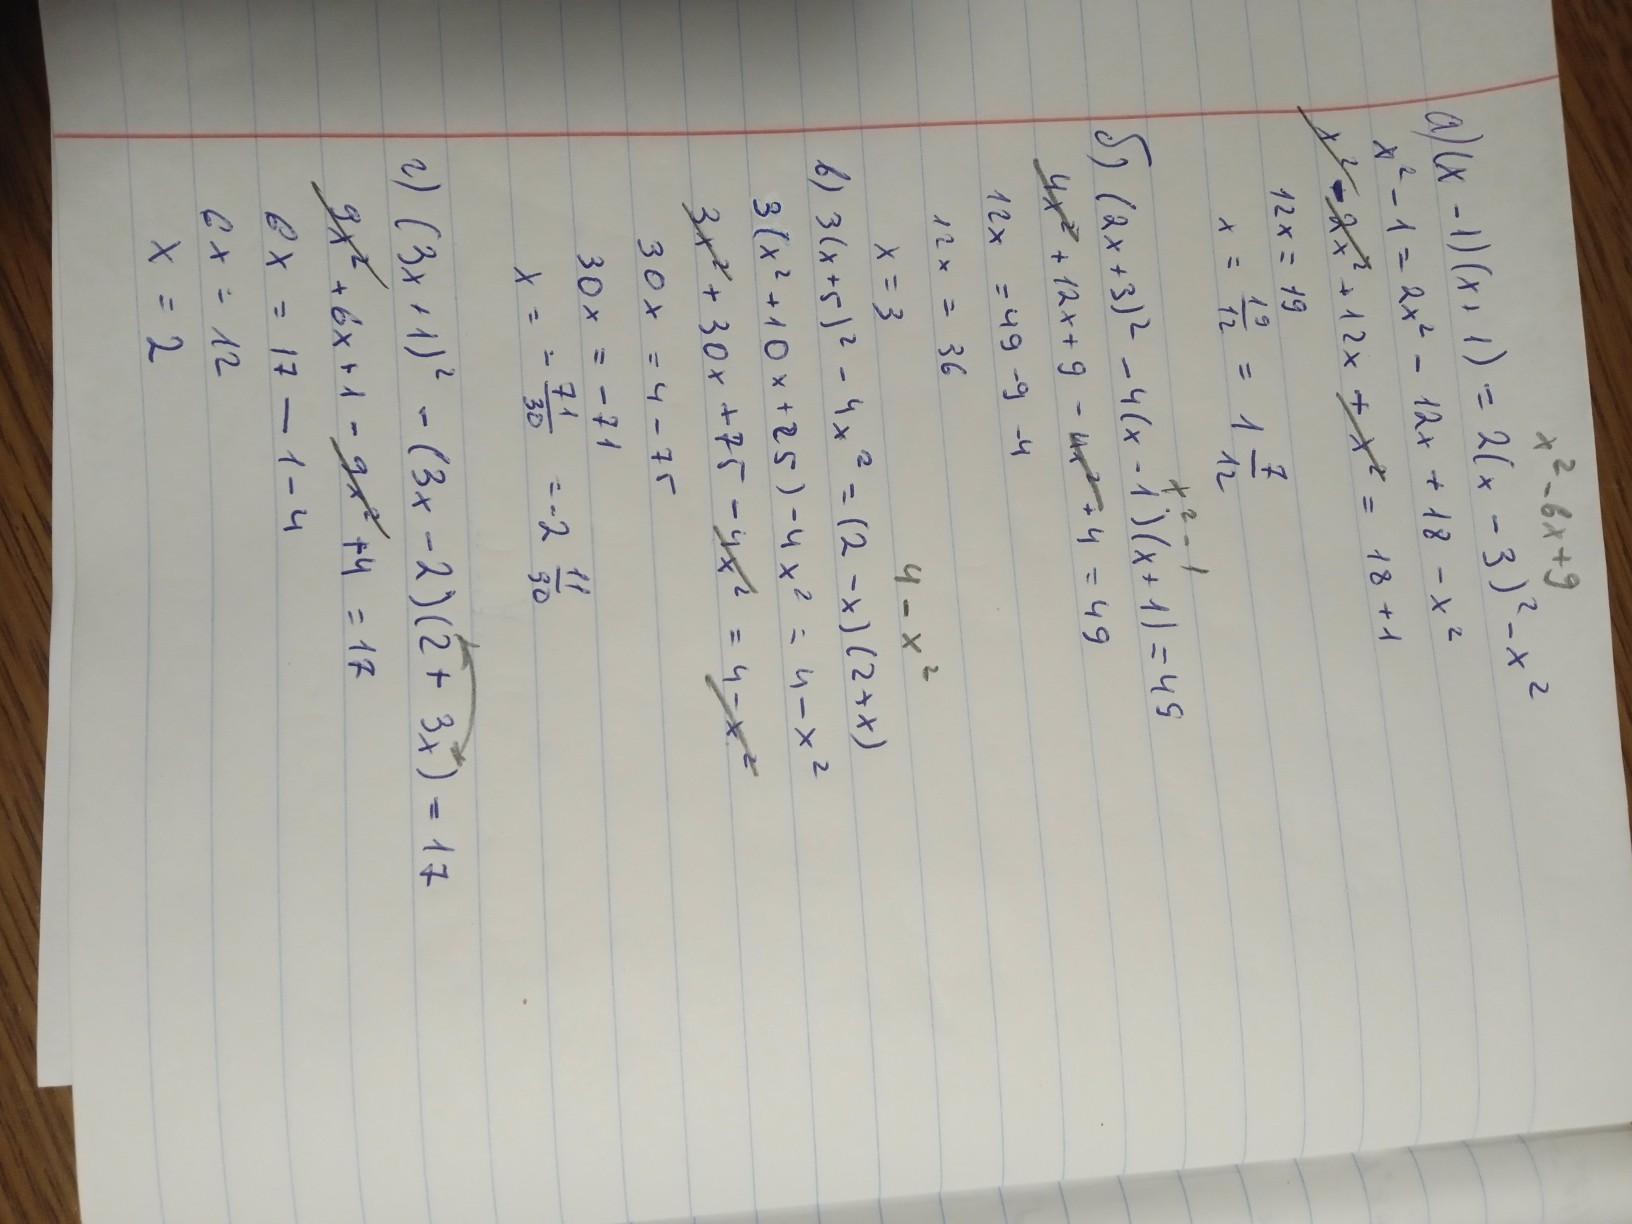 x² - 6x + 9
а) (x - 1)(x + 1) = 2(x - 3)² - x²
x² - 1 = 2x² - 12x + 18 - x²
x² - 2x² + 12x + x² = 18 + 1
12x = 19
x = 19/12 = 1 7/12
x² - 1
б) (2x + 3)² - 4(x - 1)(x + 1) = 49
4x² + 12x + 9 - 4x² + 4 = 49
12x = 49 - 9 - 4
12x = 36
x = 3
4 - x²
в) 3(x + 5)² - 4x² = (2 - x)(2 + x)
3(x² + 10x + 25) - 4x² = 4 - x²
3x² + 30x + 75 - 4x² = 4 - x²
30x = 4 - 75
30x = -71
x = - 71/30 = -2 11/30
г) (3x + 1)² - (3x - 2)(2 + 3x) = 17
9x² + 6x + 1 - 9x² + 4 = 17
6x = 17 - 1 - 4
6x = 12
x = 2